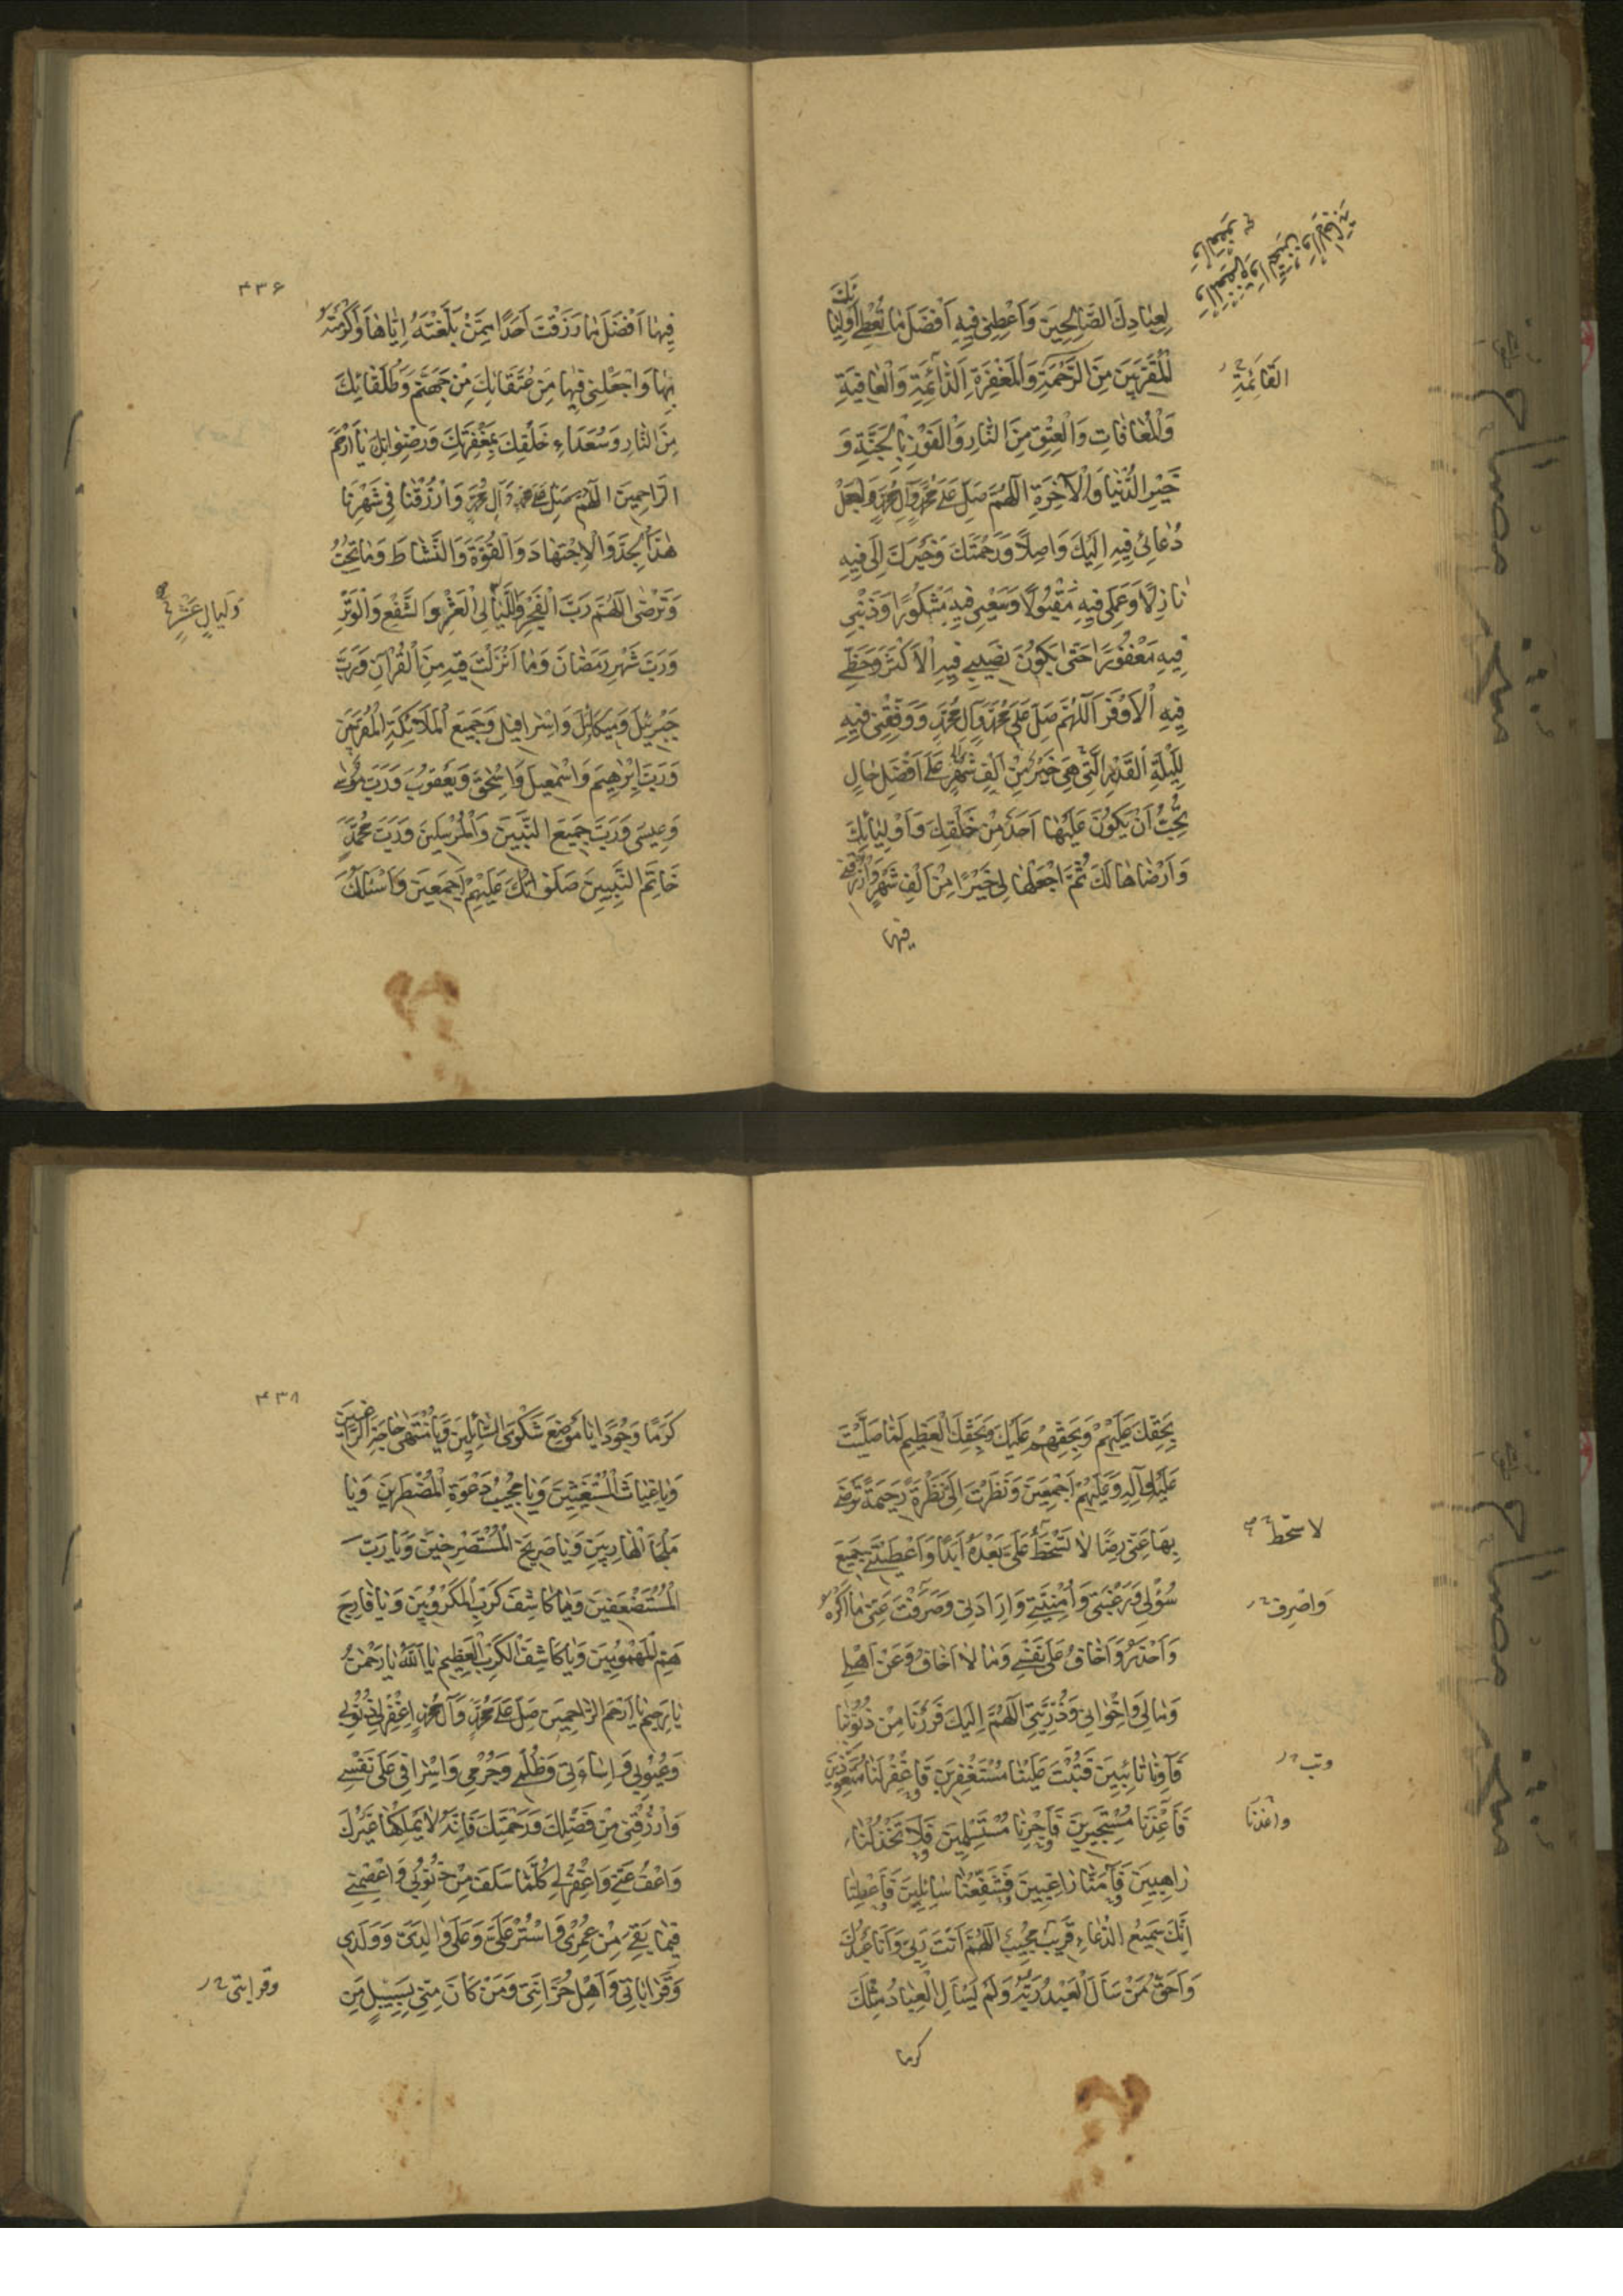 لِعِبَادِكَ الصَّالِحِينَ وَاَعْطِنِي فِيهِ اَفْضَلَ مَا تُعْطِي اَوْلِيَائَكَ
الْمُقَرَّبِينَ مِنَ الرَّحْمَةِ وَالْمَغْفِرَةِ الدَّائِمَةِ وَالْعَافِيَةِ
القَائِمَةِ
وَالْمُعَافَاتِ وَالْعِتْقِ مِنَ النَّارِ وَالْفَوْزِ بِالْجَنَّةِ وَ
خَيْرِ الدُّنْيَا وَالْآخِرَةِ اَللّهُمَّ صَلِّ عَلَى مُحَمَّدٍ وَآلِ مُحَمَّدٍ وَاجْعَلْ
دُعَائِي فِيهِ اِلَيْكَ وَاصِلًا وَرَحْمَتَكَ وَخَيْرَكَ اِلَيَّ فِيهِ
نَازِلًا وَعَمَلِي فِيهِ مَقْبُولًا وَسَعْيِي فِيهِ مَشْكُورًا وَذَنْبِي
فِيهِ مَغْفُورًا حَتّى يَكُونَ نَصِيبِي فِيهِ الْاَكْثَرَ وَحَظِّي
فِيهِ الْاَوْفَرَ اَللّهُمَّ صَلِّ عَلَى مُحَمَّدٍ وَآلِ مُحَمَّدٍ وَوَفِّقْنِي فِيهِ
لِلَيْلَةِ الْقَدْرِ الَّتِي هِيَ خَيْرٌ مِنْ اَلْفِ شَهْرٍ عَلَى اَفْضَلِ حَالٍ
تُحِبُّ اَنْ يَكُونَ عَلَيْهَا اَحَدٌ مِنْ خَلْقِكَ وَاَوْلِيَائِكَ
وَاَرْضَاهَا لَكَ ثُمَّ اجْعَلْهَا لِي خَيْرًا مِنْ اَلْفِ شَهْرٍ وَارْزُقْنِي
فيها
۴۳۶
فِيهَا اَفْضَلَ مَا رَزَقْتَ اَحَدًا مِمَّنْ بَلَّغْتَهُ اِيَّاهَا وَاَكْرَمْتَهُ
بِهَا وَاجْعَلْنِي فِيهَا مِنْ عُتَقَائِكَ مِنْ جَهَنَّمَ وَطُلَقَائِكَ
مِنَ النَّارِ وَسُعَدَاءِ خَلْقِكَ بِمَغْفِرَتِكَ وَرِضْوَانِكَ يَا اَرْحَمَ
الرَّاحِمِينَ اَللّهُمَّ صَلِّ عَلَى مُحَمَّدٍ وَآلِ مُحَمَّدٍ وَارْزُقْنَا فِي شَهْرِنَا
هٰذَا الْجِدَّ وَالْاِجْتِهَادَ وَالْقُوَّةَ وَالنَّشَاطَ وَمَا تُحِبُّ
وَتَرْضَى اَللّهُمَّ رَبَّ الْفَجْرِ وَاللَّيَالِي الْعَشْرِ وَالشَّفْعِ وَالْوَتْرِ
وَلَيَالٍ عَشْرٍ
وَرَبَّ شَهْرِ رَمَضَانَ وَمَا اَنْزَلْتَ فِيهِ مِنَ الْقُرْآنِ وَرَبَّ
جَبْرَئِيلَ وَمِيكَائِلَ وَاِسْرَافِيلَ وَجَمِيعِ الْمَلَائِكَةِ الْمُقَرَّبِينَ
وَرَبَّ اِبْرٰهِيمَ وَاِسْمٰعِيلَ وَاِسْحٰقَ وَيَعْقُوبَ وَرَبَّ مُوسٰى
وَعِيسَى وَرَبَّ جَمِيعِ النَّبِيِّينَ وَالْمُرْسَلِينَ وَرَبَّ مُحَمَّدٍ
خَاتَمِ النَّبِيِّينَ صَلَوَاتُكَ عَلَيْهِمْ اَجْمَعِينَ وَاَسْئَلُكَ
بِحَقِّكَ عَلَيْهِمْ وَبِحَقِّهِمْ عَلَيْكَ وَبِحَقِّكَ الْعَظِيمِ لَمَّا صَلَّيْتَ
عَلَيْهِ وَآلِهِ وَعَلَيْهِمْ اَجْمَعِينَ وَنَظَرْتَ اِلَيَّ نَظْرَةً رَحِيمَةً تَرْضَى
بِهَا عَنِّي رِضًا لَا تَسْخَطُ عَلَيَّ بَعْدَهُ اَبَدًا وَاَعْطَيْتَنِي جَمِيعَ
لا سخط
سُؤْلِي وَرَغْبَتِي وَاُمْنِيَّتِي وَاِرَادَتِي وَصَرَفْتَ عَنِّي مَا اَكْرَهُ
وَاصْرِف
وَاَحْذَرُ وَاَخَافُ عَلَى نَفْسِي وَمَا لَا اَخَافُ وَعَنْ اَهْلِي
وَمَالِي وَاِخْوَانِي وَذُرِّيَّتِي اَللّهُمَّ اِلَيْكَ فَرَرْنَا مِنْ ذُنُوبِنَا
فَآوِنَا تَائِبِينَ فَتُبْتَ عَلَيْنَا مُسْتَغْفِرِينَ فَاغْفِرْ لَنَا مُتَعَوِّذِينَ
وتب
فَاَعِذْنَا مُسْتَجِيرِينَ فَاَجِرْنَا مُسْتَسْلِمِينَ فَلَا تَخْذُلْنَا
واَعِذنَا
رَاهِبِينَ فَآمِنَّا رَاغِبِينَ فَشَفِّعْنَا سَائِلِينَ فَاَعْطِنَا
اِنَّكَ سَمِيعُ الدُّعَاءِ قَرِيبٌ مُجِيبٌ اَللّهُمَّ اَنْتَ رَبِّي وَاَنَا عَبْدُكَ
وَاَحَقُّ مَنْ سَاَلَ الْعَبْدُ رَبَّهُ وَلَمْ يَسْاَلِ الْعِبَادُ مِثْلَكَ
كرما
۴۳۸
كَرَمًا وَجُودًا يَا مَوْضِعَ شَكْوَى السَّائِلِينَ وَيَا مُنْتَهٰى حَاجَةِ الرَّاغِبِينَ
وَيَا غِيَاثَ الْمُسْتَغِيثِينَ وَيَا مُجِيبَ دَعْوَةِ الْمُضْطَرِّينَ وَيَا
مَلْجَاَ الْهَارِبِينَ وَيَا صَرِيخَ الْمُسْتَصْرِخِينَ وَيَا رَبَّ
الْمُسْتَضْعَفِينَ وَيَا كَاشِفَ كَرْبِ الْمَكْرُوبِينَ وَيَا فَارِجَ
هَمِّ الْمَهْمُومِينَ وَيَا كَاشِفَ الْكَرْبِ الْعَظِيمِ يَا اَللّهُ يَا رَحْمٰنُ
يَا رَحِيمُ يَا اَرْحَمَ الرَّاحِمِينَ صَلِّ عَلَى مُحَمَّدٍ وَآلِ مُحَمَّدٍ وَاغْفِرْ لِي ذُنُوبِي
وَعُيُوبِي وَاِسَاءَتِي وَظُلْمِي وَجُرْمِي وَاِسْرَافِي عَلَى نَفْسِي
وَارْزُقْنِي مِنْ فَضْلِكَ وَرَحْمَتِكَ فَاِنَّهُ لَا يَمْلِكُهَا غَيْرُكَ
وَاعْفُ عَنِّي وَاغْفِرْ لِي كُلَّمَا سَلَفَ مِنْ ذُنُوبِي وَاعْصِمْنِي
فِيمَا بَقِيَ مِنْ عُمْرِي وَاسْتُرْ عَلَيَّ وَعَلَى وَالِدَيَّ وَوَلَدِي
وَقَرَابَاتِي وَاَهْلِ حُزَانَتِي وَمَنْ كَانَ مِنِّي بِسَبِيلٍ مِنَ
وقرابتى